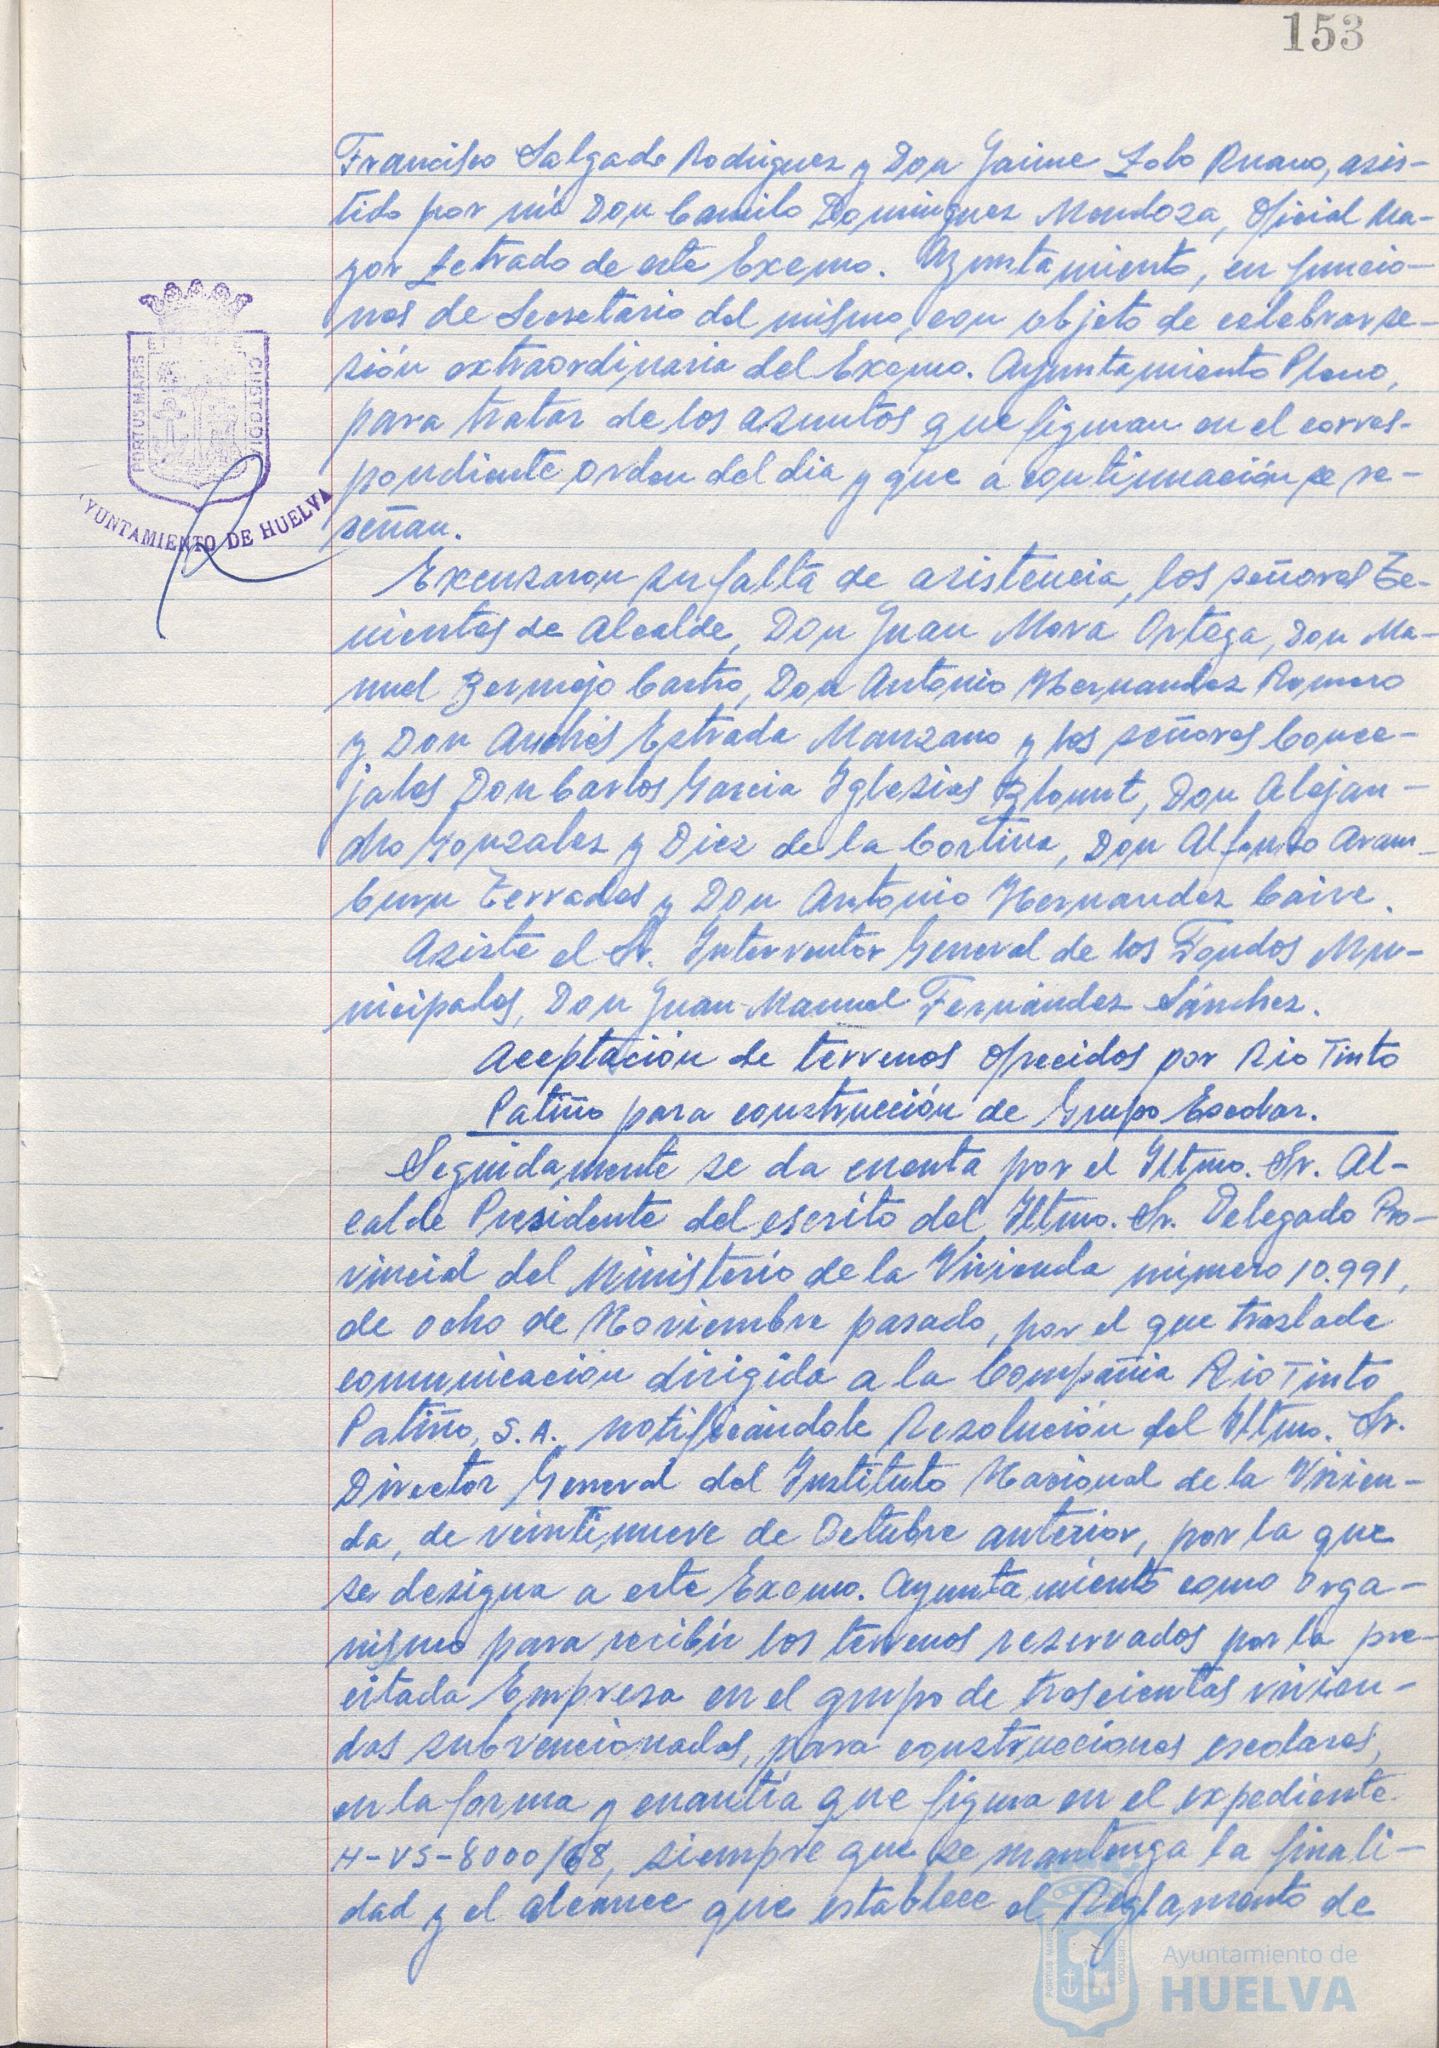 153
Francisco Salgado Rodriguez y Don Jaime Lobo Ruano, asis-
tido por mi Don Camilo Dominguez Mendoza, Oficial Ma-
yor Letrado de este Excmo. Ayuntamiento, en funcio-
nes de Secretario del mismo, con objeto de celebrar se-
sión extraordinaria del Excmo. Ayuntamiento Pleno,
para tratar de los asuntos que figuran en el corres-
pondiente orden del dia y que a continuación se re-
señan.
PORTUS MARIS ET TERRE CUSTODIA
AYUNTAMIENTO DE HUELVA
Excusaron su falta de asistencia, los señores Te-
nientes de Alcalde, Don Juan Mora Ortega, Don Ma-
nuel Bermejo Castro, Don Antonio Hernandez Romero
y Don Andrés Estrada Manzano y los señores Conce-
jales Don Carlos Garcia Yglesias Blount, Don Alejan-
dro Gonzalez y Diez de la Cortina, Don Alfonso Aram-
buru Terrades y Don Antonio Hernandez Caire.
Asiste el Sr. Interventor General de los Fondos Mu-
nicipales, Don Juan-Manuel Fernández Sánchez.
Aceptación de terrenos ofrecidos por Rio Tinto
Patiño para construcción de Grupo Escolar.
Seguidamente se da cuenta por el Iltmo. Sr. Al-
calde Presidente del escrito del Iltmo. Sr. Delegado Pro-
vincial del Ministerio de la Vivienda número 10.991,
de ocho de Noviembre pasado, por el que traslada
comunicación dirigida a la Compañia Rio Tinto
Patiño, S.A., notificándole Resolución del Iltmo. Sr.
Director General del Instituto Nacional de la Vivien-
da, de veintinueve de Octubre anterior, por la que
se designa a este Excmo. Ayuntamiento como Orga-
nismo para recibir los terrenos reservados por la pre-
citada Empresa en el grupo de trescientas vivien-
das subvencionadas, para construcciones escolares,
en la forma y cuantía que figura en el expediente
H-VS-8000/68, siempre que se mantenga la finali-
dad y el alcance que establece el Reglamento de
PORTUS MARIS CUSTODIA
Ayuntamiento de
HUELVA